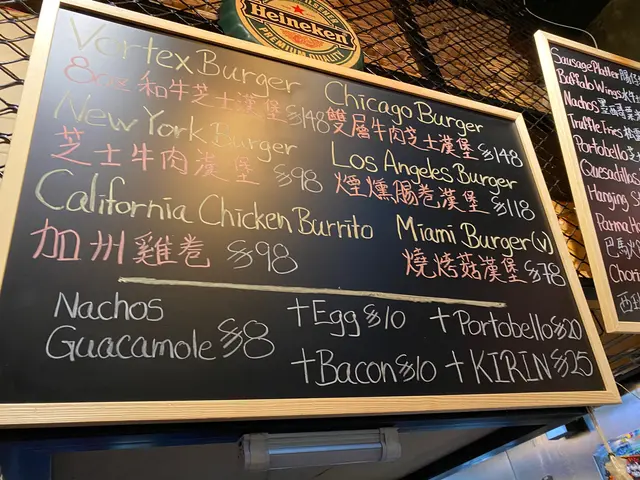 Heineken
PREMIUM QUALITY
Vortex Burger
8oz 和牛芝士漢堡 $148
New York Burger
芝士牛肉漢堡 $98
California Chicken Burrito
加州雞卷 $98
Chicago Burger
雙層牛肉芝士漢堡 $148
Los Angeles Burger
煙燻腸卷漢堡 $118
Miami Burger (v)
燒烤菇漢堡 $78
Nachos
Guacamole $8
+Egg $10
+Portobello $20
+Bacon $10
+KIRIN $25
Sausage Platter
Buffalo Wings
Nachos
Truffle Fries
Portobello
Quesadillas
Hanging
Parma
巴馬火